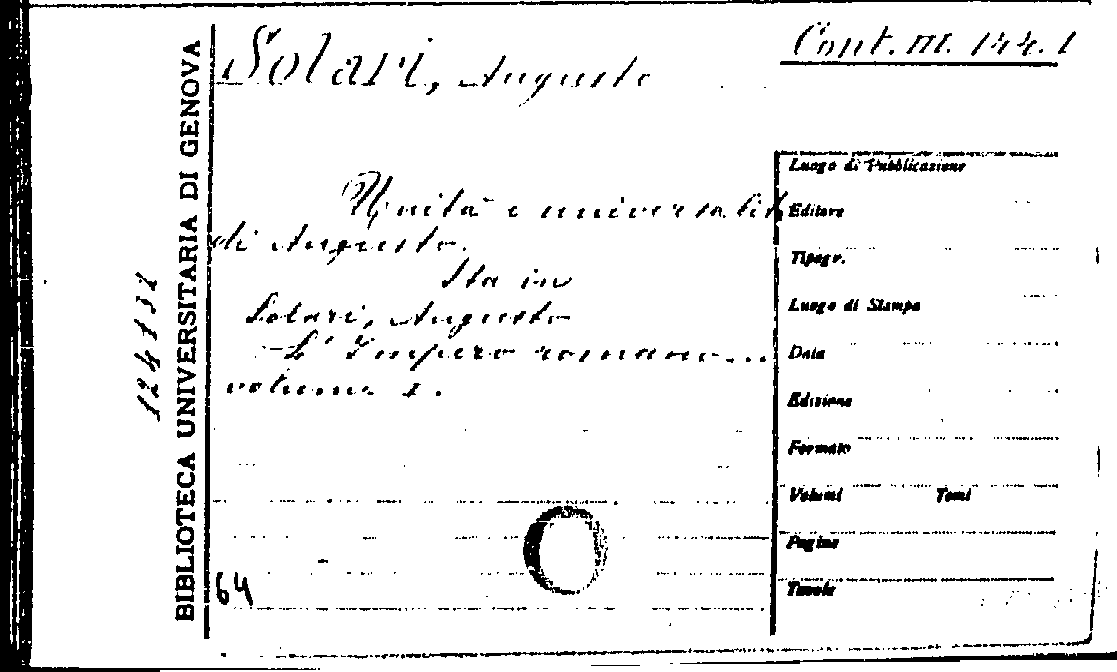 Solari, Augusto
Cont. III. 144. 1
Unità e universalità
di Augusto.
Sta in
Solari, Augusto
L'Impero romano...
volume I.
BIBLIOTECA UNIVERSITARIA DI GENOVA
64
Luogo di Pubblicazione
Editore
Tipogr.
Luogo di Stampa
Data
Edizione
Formato
Volumi Tomi
Pagine
Tavole